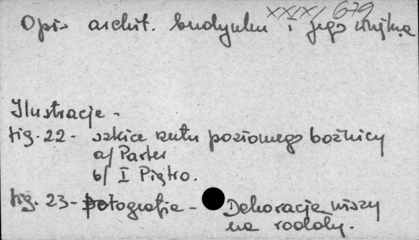 XXIX/679
Opis archit. budynku i jego wnętrza
Ilustracje -
fig. 22 - szkice rzutu poziomego bożnicy
a/ Parter
b/ I Piętro.
fig. 23 - fotografia - Dekoracja niszy
na rodały.